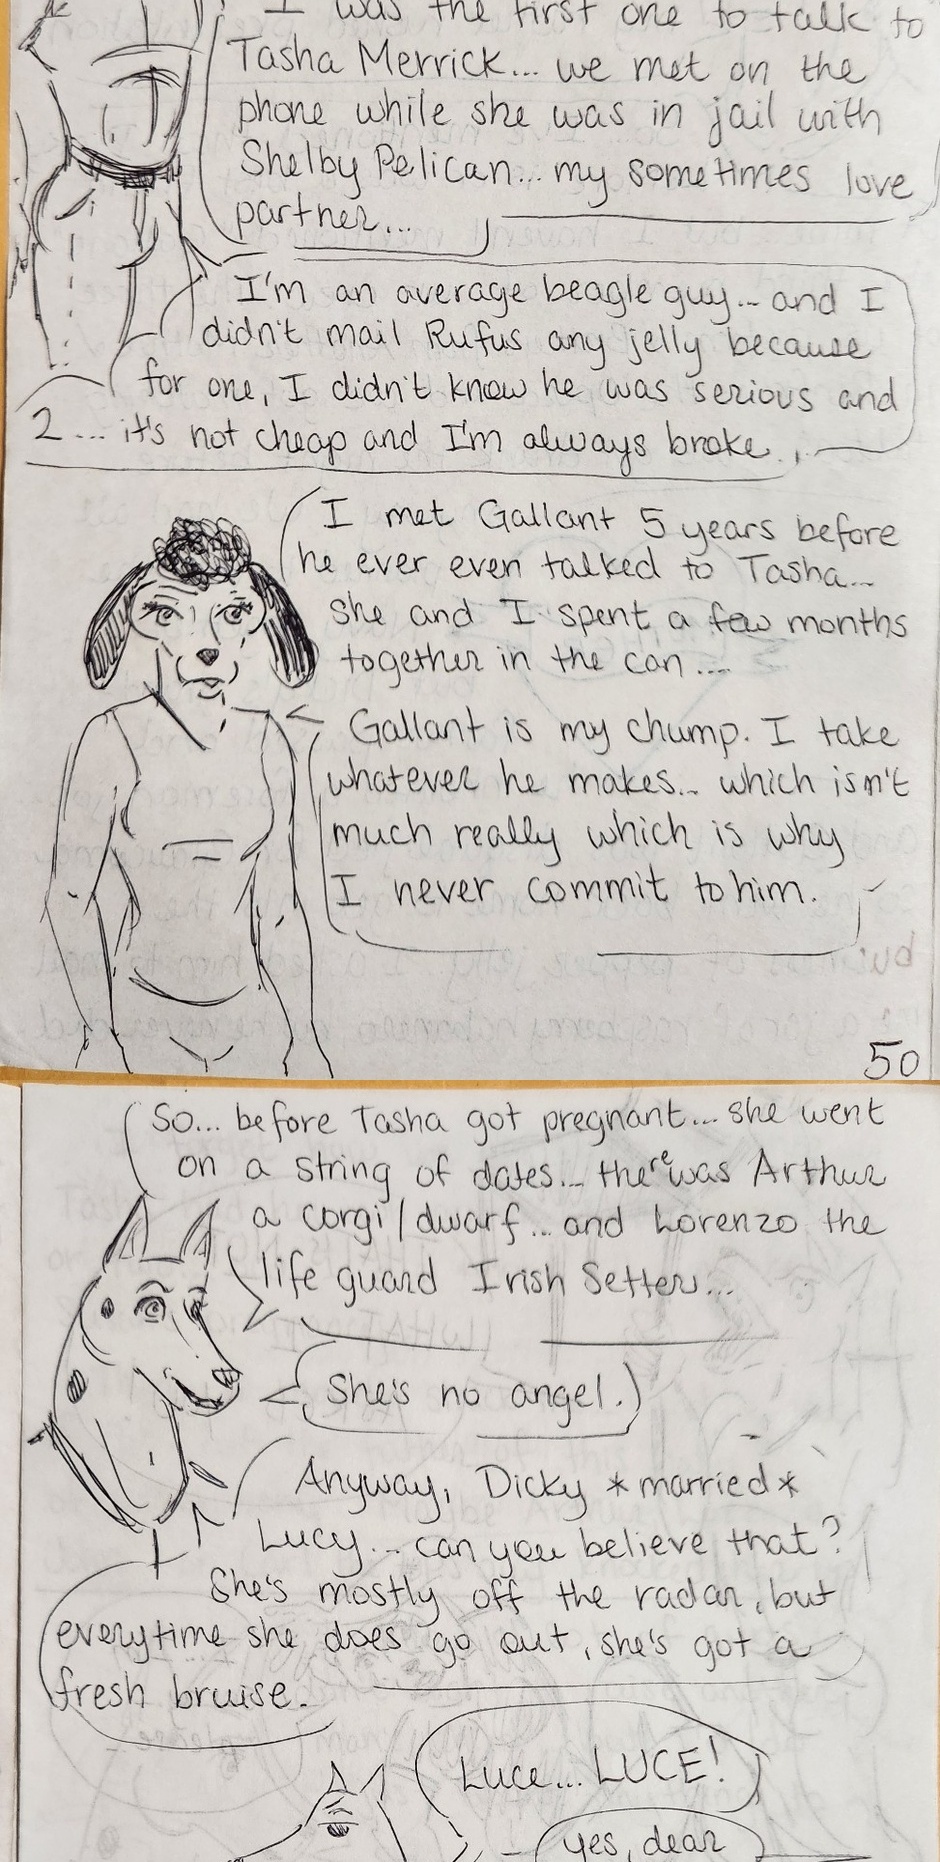 I was the first one to talk to
Tasha Merrick... we met on the
phone while she was in jail with
Shelby Pelican... my sometimes love
partner...
I'm an average beagle guy... and I
didn't mail Rufus any jelly because
for one, I didn't know he was serious and
2... it's not cheap and I'm always broke.
I met Gallant 5 years before
he ever even talked to Tasha...
she and I spent a few months
together in the can...
Gallant is my chump. I take
whatever he makes... which isn't
much really which is why
I never commit to him.
50
So... before Tasha got pregnant... she went
on a string of dates... there was Arthur
a corgi/dwarf... and Lorenzo the
life guard Irish Setter...
She's no angel.
Anyway, Dicky *married*
Lucy... can you believe that?
She's mostly off the radar, but
everytime she does go out, she's got a
fresh bruise.
Luce... LUCE!
yes, dear